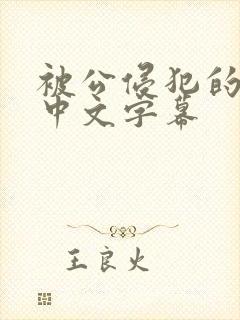 被公侵犯的
中文字幕
王良火